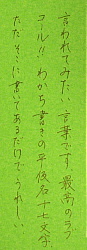 言われてみたい言葉です。最高のラブ
コール!!わかち書きの平仮名十七文字。
ただそこに書いてあるだけでうれしい。